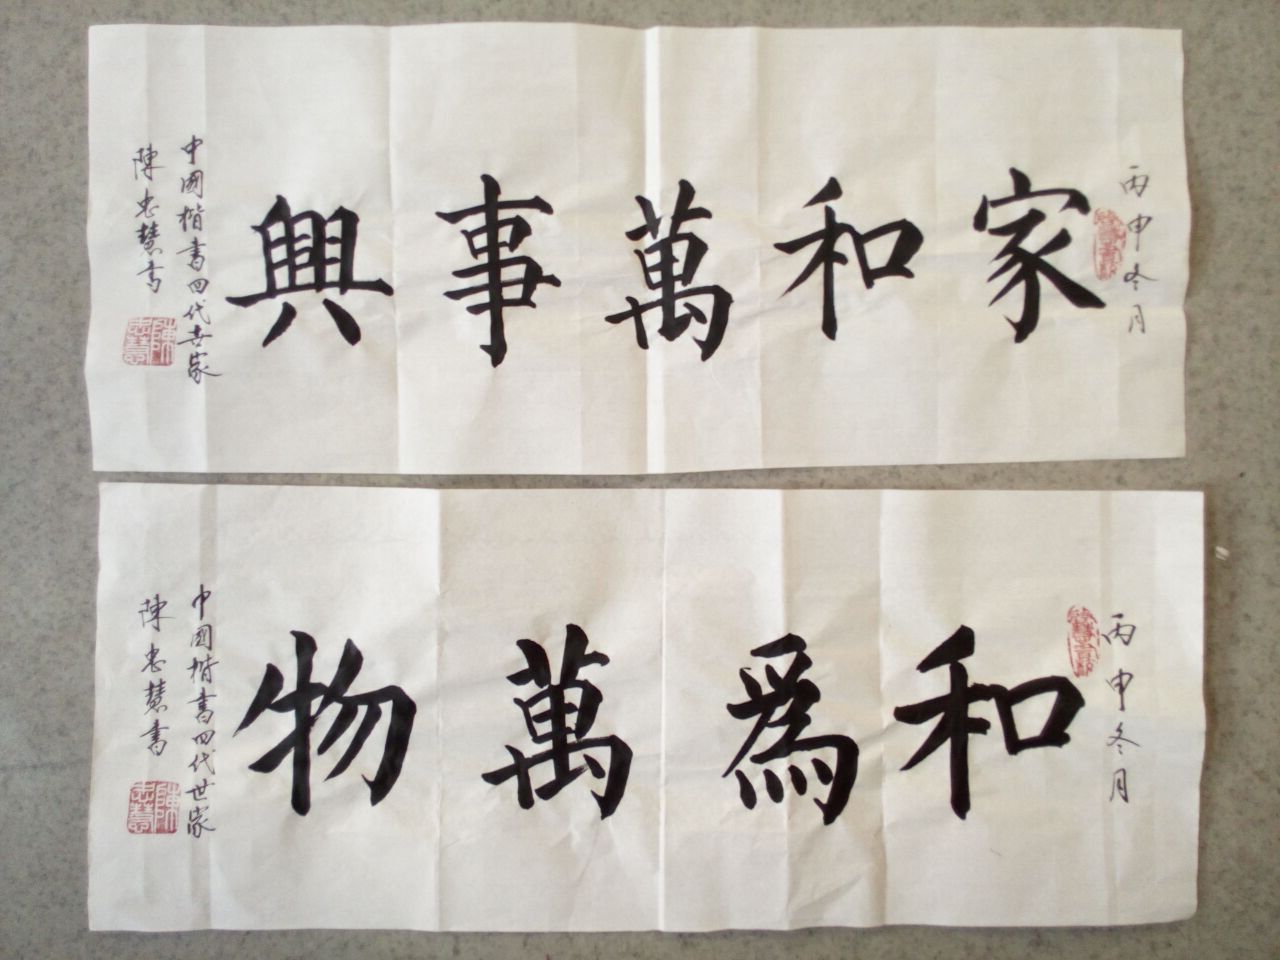 丙申冬月
家和萬事興
中國楷書四代世家
陳忠慧書
陳忠慧
丙申冬月
和爲萬物
中國楷書四代世家
陳忠慧書
陳忠慧